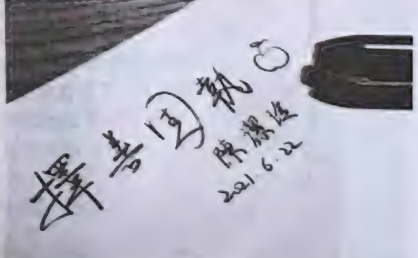 擇善固執
陳潔瑩
2021.6.22